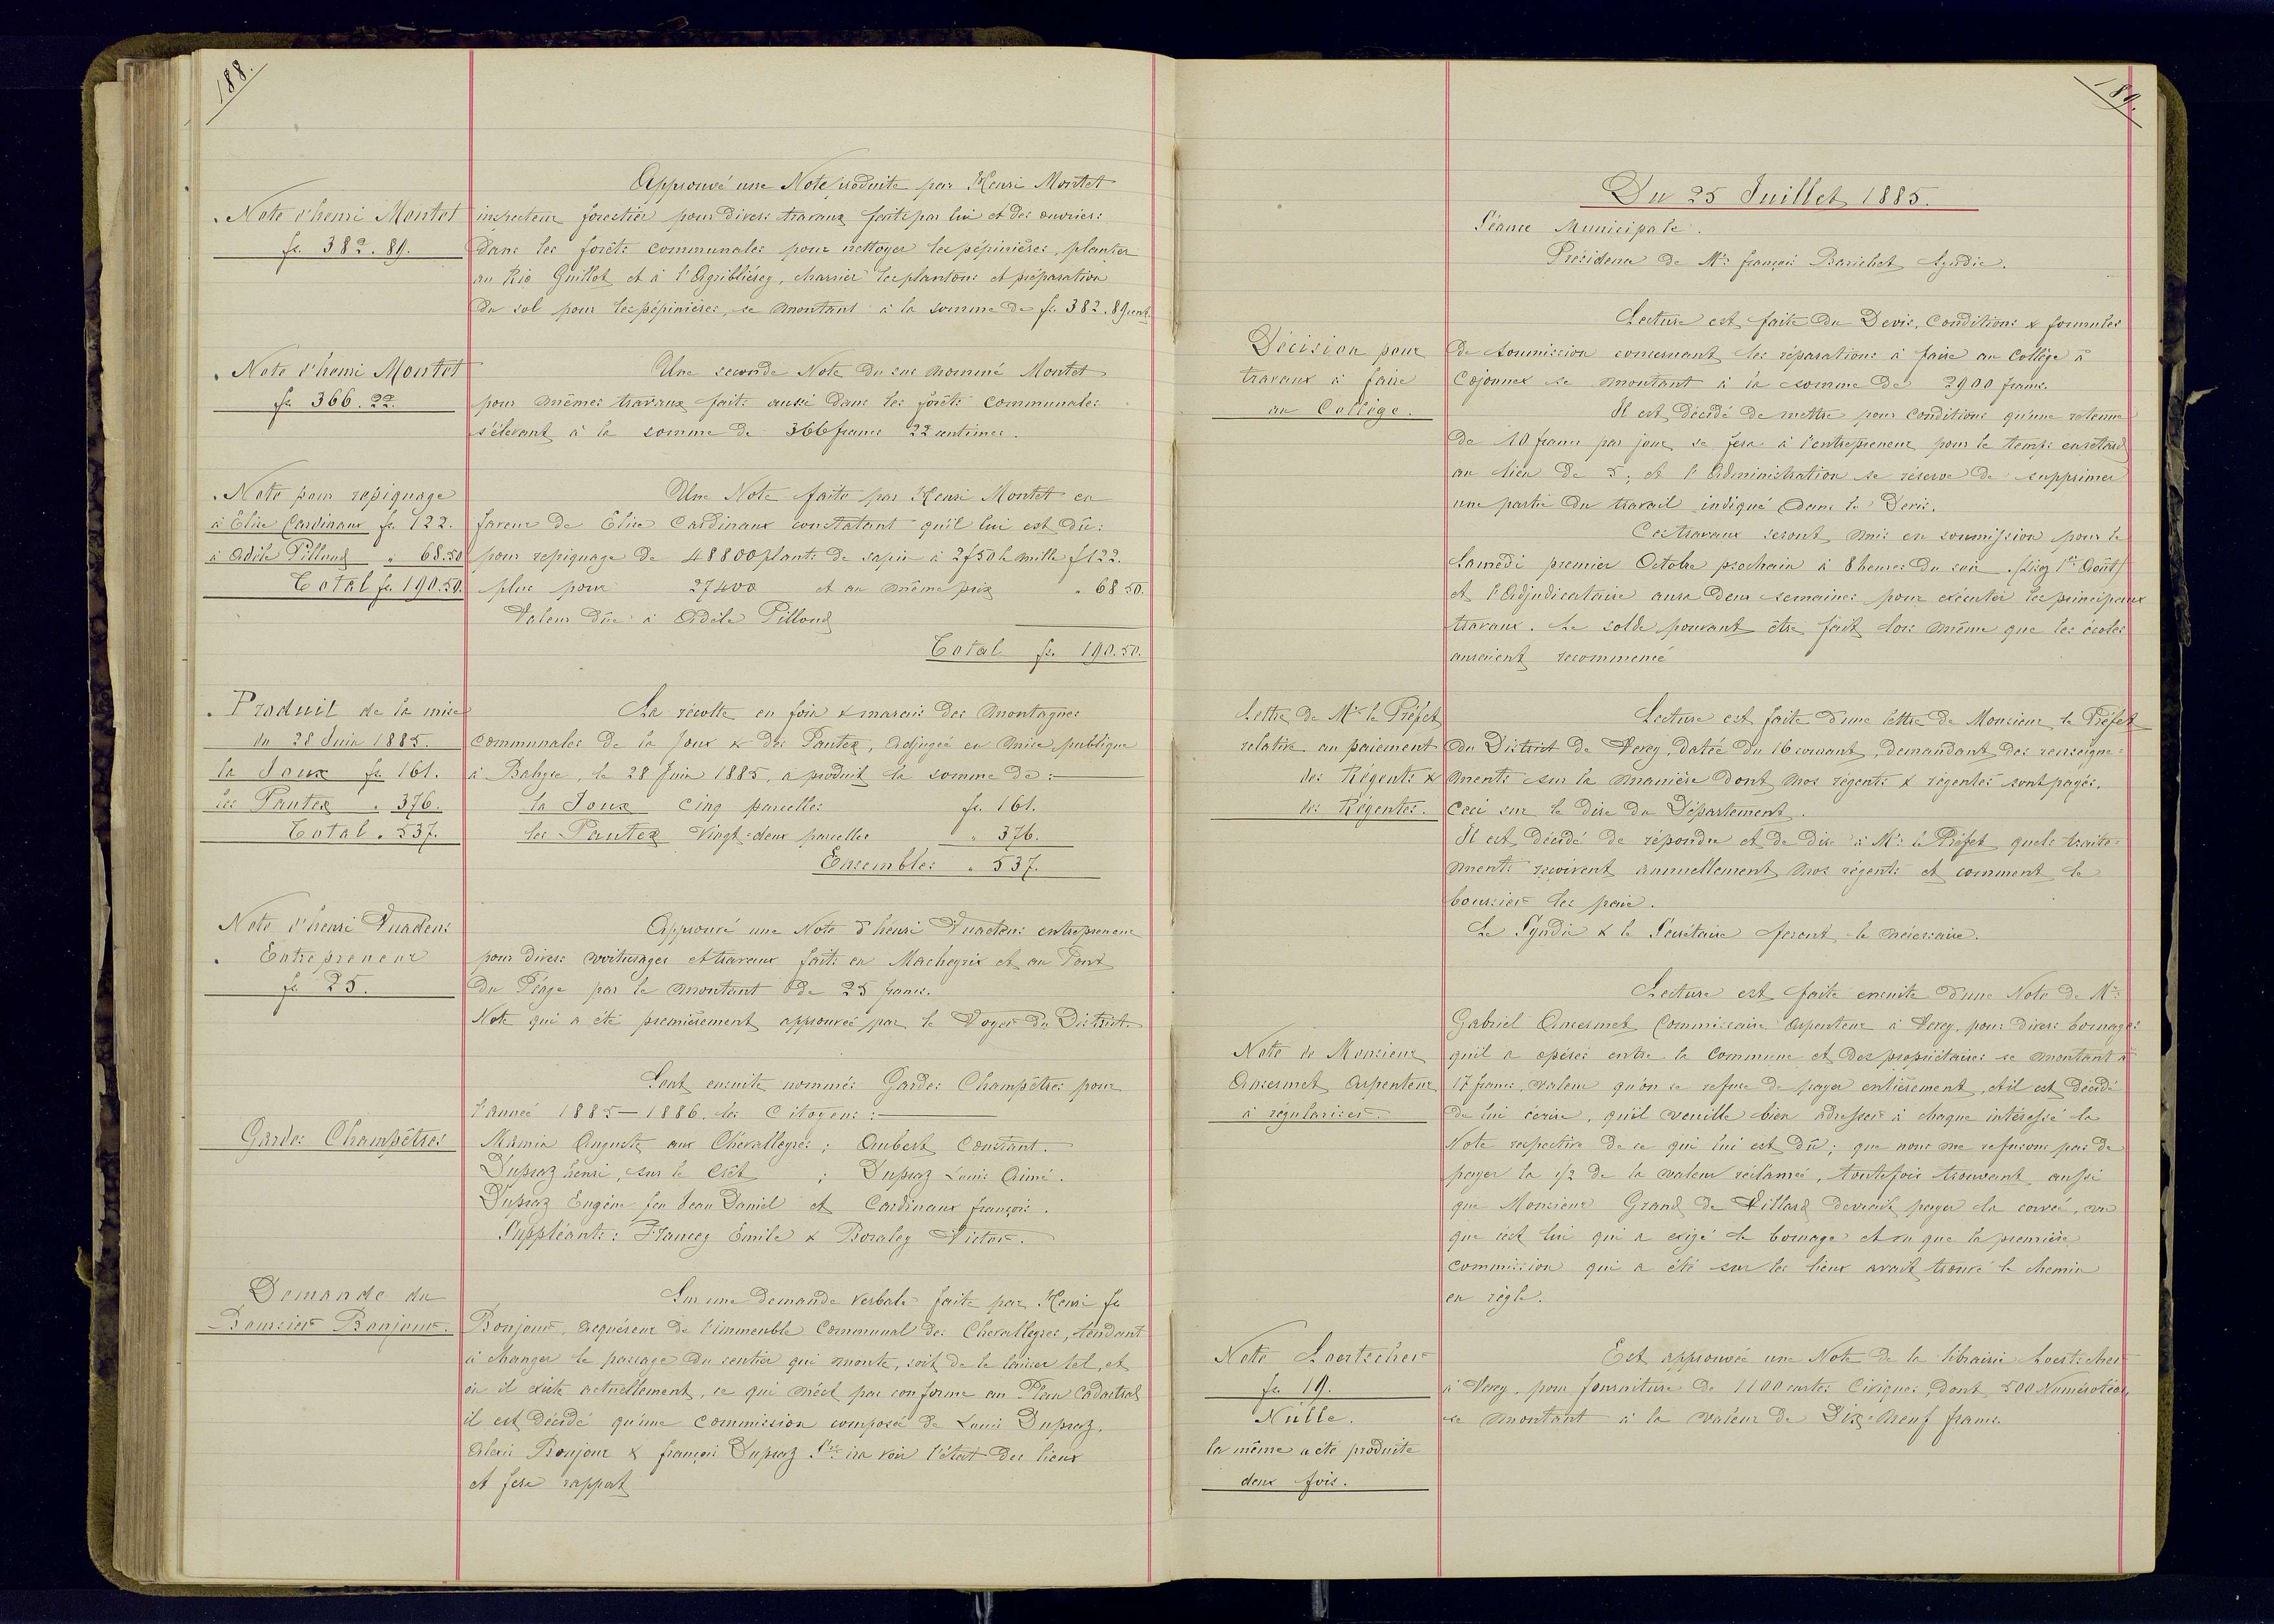 188.
Approuvé une Note produite par Henri Montet
. Note d'henri Montet
fr. 382.89.
inspecteur forestier pour divers travaux faits par lui et des ouvriers
dans les forêts communales pour nettoyer les pépinières, planter
au Rio Guillot et à l'Agriblièrey, charrier les plantons et préparation
du sol pour les pépinières, se montant à la somme de fr. 382.89 cent.
. Note d'henri Montet
fr. 366.22.
Une seconde Note du sus nommé Montet
pour mêmes travaux faits aussi dans les forêts communales
s'élevant à la somme de 366 francs 22 centimes.
. Note pour repiquage
à Elise Cardinaux fr. 122.
à Adèle Pilloud " 68.50
Total fr. 190.50.
Une Note faite par Henri Montet en
faveur de Elise Cardinaux constatant qu'il lui est dû:
pour repiquage de 48800 plants de sapin à 2f50 le mille f 122.
plus pour 27400 et au même prix " 68.50.
Valeur dûe à Adèle Pilloud
Total fr. 190.50.
. Produit de la mise
du 28 Juin 1885.
la Joux fr. 161.
les Pautex " 376.
Total " 537.
La récolte en foin & marais des Montagnes
communales de la Joux & des Pautex, adjugée en mise publique
à Bahyse, le 28 Juin 1885, a produit la somme de:
la Joux cinq parcelles fr. 161.
les Pautex Vingt-deux parcelles " 376.
Ensembles " 537.
Note d'henri Vuadens
. Entrepreneur
fr. 25.
Approuvé une Note d'henri Vuadens entrepreneur
pour divers voiturages et travaux faits en Macheyrix et au Pont
du Péage par le montant de 25 francs.
Note qui a été premièrement approuvée par le Voyer du District.
Gardes Champêtres
Sont ensuite nommés Gardes Champêtres pour
l'année 1885-1886. les Citoyens:
Mamin Auguste aux Chevalleyres; Aubert Constant.
Dupraz henri, sur le Crêt ; Dupraz Louis Aimé.
Dupraz Eugène feu Jean Daniel et Cardinaux françois.
Suppléants: Francey Emile & Boraley Victor.
Demande du
Boursier Bonjour.
Sur une demande verbale faite par Henri fs
Bonjour, acquéreur de l'immeuble Communal des Chevalleyres, tendant
à changer le passage du sentier qui monte, soit de le laisser tel, et
où il existe actuellement, ce qui n'est pas conforme au Plan Cadastral
il est décidé qu'une commission composée de Louis Dupraz,
Alexis Bonjour & françois Dupraz ira voir l'état des lieux
et fera rapport
189.
Du 25 Juillet 1885.
Séance Municipale.
Présidence de Mr. françois Borichet Syndic.
Décision pour
travaux à faire
au Collège.
Lecture est faite du Devis, Conditions & formules
de soumission concernant les réparations à faire au Collège à
Cojonnex se montant à la somme de 2900 francs.
Il est décidé de mettre pour conditions qu'une retenue
de 10 francs par jour se fera à l'entrepreneur pour le temps en retard
au lieu de 5; et l'Administration se réserve de supprimer
une partie du travail indiqué dans le Devis.
Ces travaux seront mis en soumission pour le
Samedi premier Octobre prochain à 8 heures du soir. (Lisez 1er Août)
et l'Adjudicataire aura deux semaines pour exécuter les principaux
travaux. Le solde pouvant être fait lors même que les écoles
auraient recommencé
Lettre de Mr. le Préfet
relative au paiement
des Régents &
des Régentes.
Lecture est faite d'une lettre de Monsieur le Préfet
du District de Vevey, datée du 16 courant, demandant des renseigne=
ments sur la manière dont nos régents & régentes sont payés.
Ceci sur le dire du Département.
Il est décidé de répondre et de dire à Mr. le Préfet quels traite=
ments reçoivent annuellement nos régents et comment le
boursier les paie.
Le Syndic & le Secrétaire feront le nécessaire.
Note de Monsieur
Ansermet Arpenteur
à régulariser.
Lecture est faite ensuite d'une Note de Mr.
Gabriel Ansermet Commissaire Arpenteur à Vevey, pour divers bornages
qu'il a opérés entre la Commune et des propriétaires se montant à
17 francs, valeur qu'on se refuse de payer entièrement, et il est décidé
de lui écrire, qu'il veuille bien adresser à chaque intéressé la
Note respective de ce qui lui est dû; que nous ne refusons pas de
payer la 1/2 de la valeur réclamée, toutefois trouvant aussi
que Monsieur Grand de Villard devrait payer la corvée, vu
que c'est lui qui a exigé le bornage et vu que la première
commission qui a été sur les lieux avait trouvé le chemin
en règle.
Note Loertscher
fr. 19.
Nulle.
la même a été produite
deux fois.
Est approuvée une Note de la librairie Loertscher
à Vevey, pour fourniture de 1100 cartes Civiques, dont 500 Numérotées
se montant à la valeur de Dix-neuf francs.